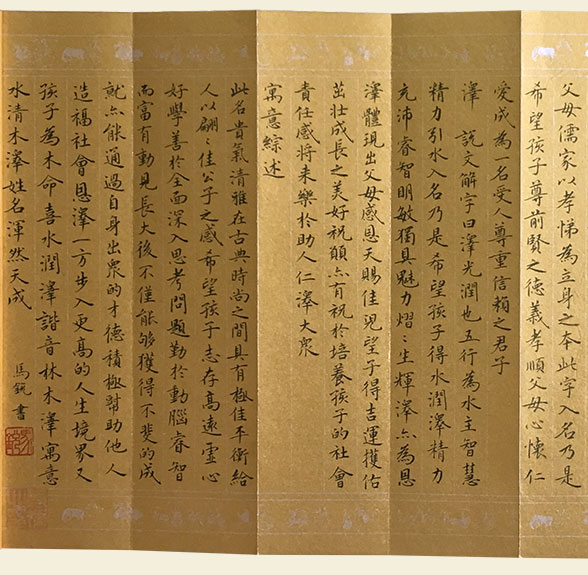 父母儒家以孝悌為立身之本此字入名乃是
希望孩子尊前賢之德義孝順父母心懷仁
愛成為一名受人尊重信賴之君子
澤 說文解字曰澤光潤也五行為水主智慧
精力引水入名乃是希望孩子得水潤澤精力
充沛睿智明敏獨具魅力熠々生輝澤亦為恩
澤體現出父母感恩天賜佳兒望子得吉運獲佑
茁壯成長之美好祝願亦有祝於培養孩子的社會
責任感將來樂於助人仁澤大眾
寓意綜述
此名貴氣清雅在古典時尚之間具有極佳平衡給
人以翩々佳公子之感希望孩子志存高遠靈心
好學善於全面深入思考問題勤於動腦睿智
而富有動見長大後不僅能够獲得不斐的成
就亦能通過自身出眾的才德積極幫助他人
造福社會恩澤一方步入更高的人生境界又
孩子為木命喜水潤澤諧音林木澤寓意
水清木澤姓名渾然天成
馬銳書